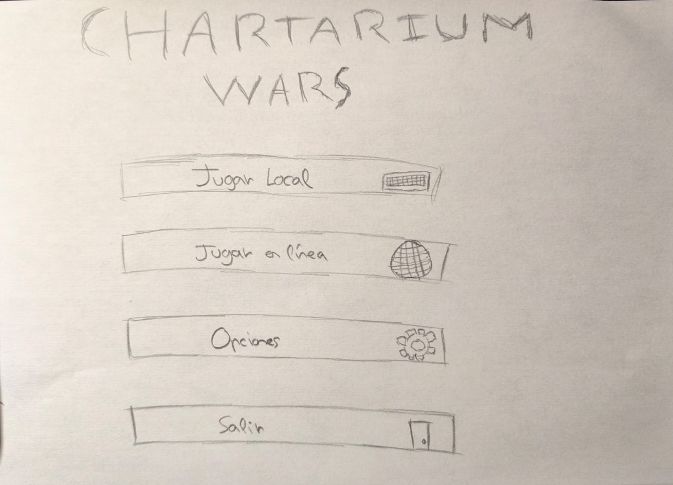 CHARTARIUM
WARS
Jugar Local
Jugar en línea
Opciones
Salir